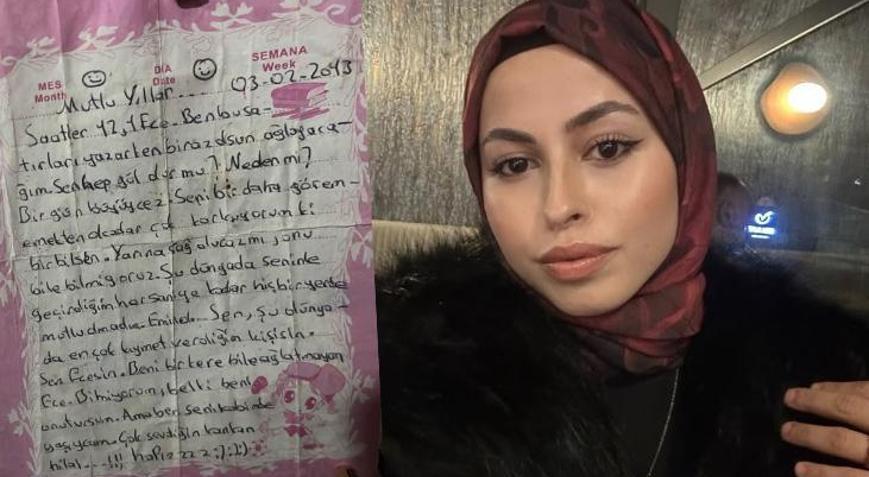 MES
Month
DIA
Date
SEMANA
Week
03-02-2013
Mutlu Yıllar....
Saatler 12, 1 Ece. Ben bu sa-
tırları yazarken biraz olsun ağlayaca-
ğım. Sen hep gül dur mu? Neden mi?
Bir gün büyüycez. Seni bir daha görem-
emekten o kadar çok korkuyorum ki
bir bilsen. Yarına sağ olucazmı şunu
bile bilmiyoruz. Şu dünyada seninle
geçirdiğim her saniye kadar hiçbir yerde
mutlu olmadım. Sen, şu dünya-
da en çok kıymet verdiğim kişisin.
Sen Ecesin. Beni bir kere bile ağlatmayan
Ece. Bilmiyorum, belki beni
unutursun. Ama ben seni kalbimde
yaşıycam. Çok sevdiğin kankan
hilal...!!!